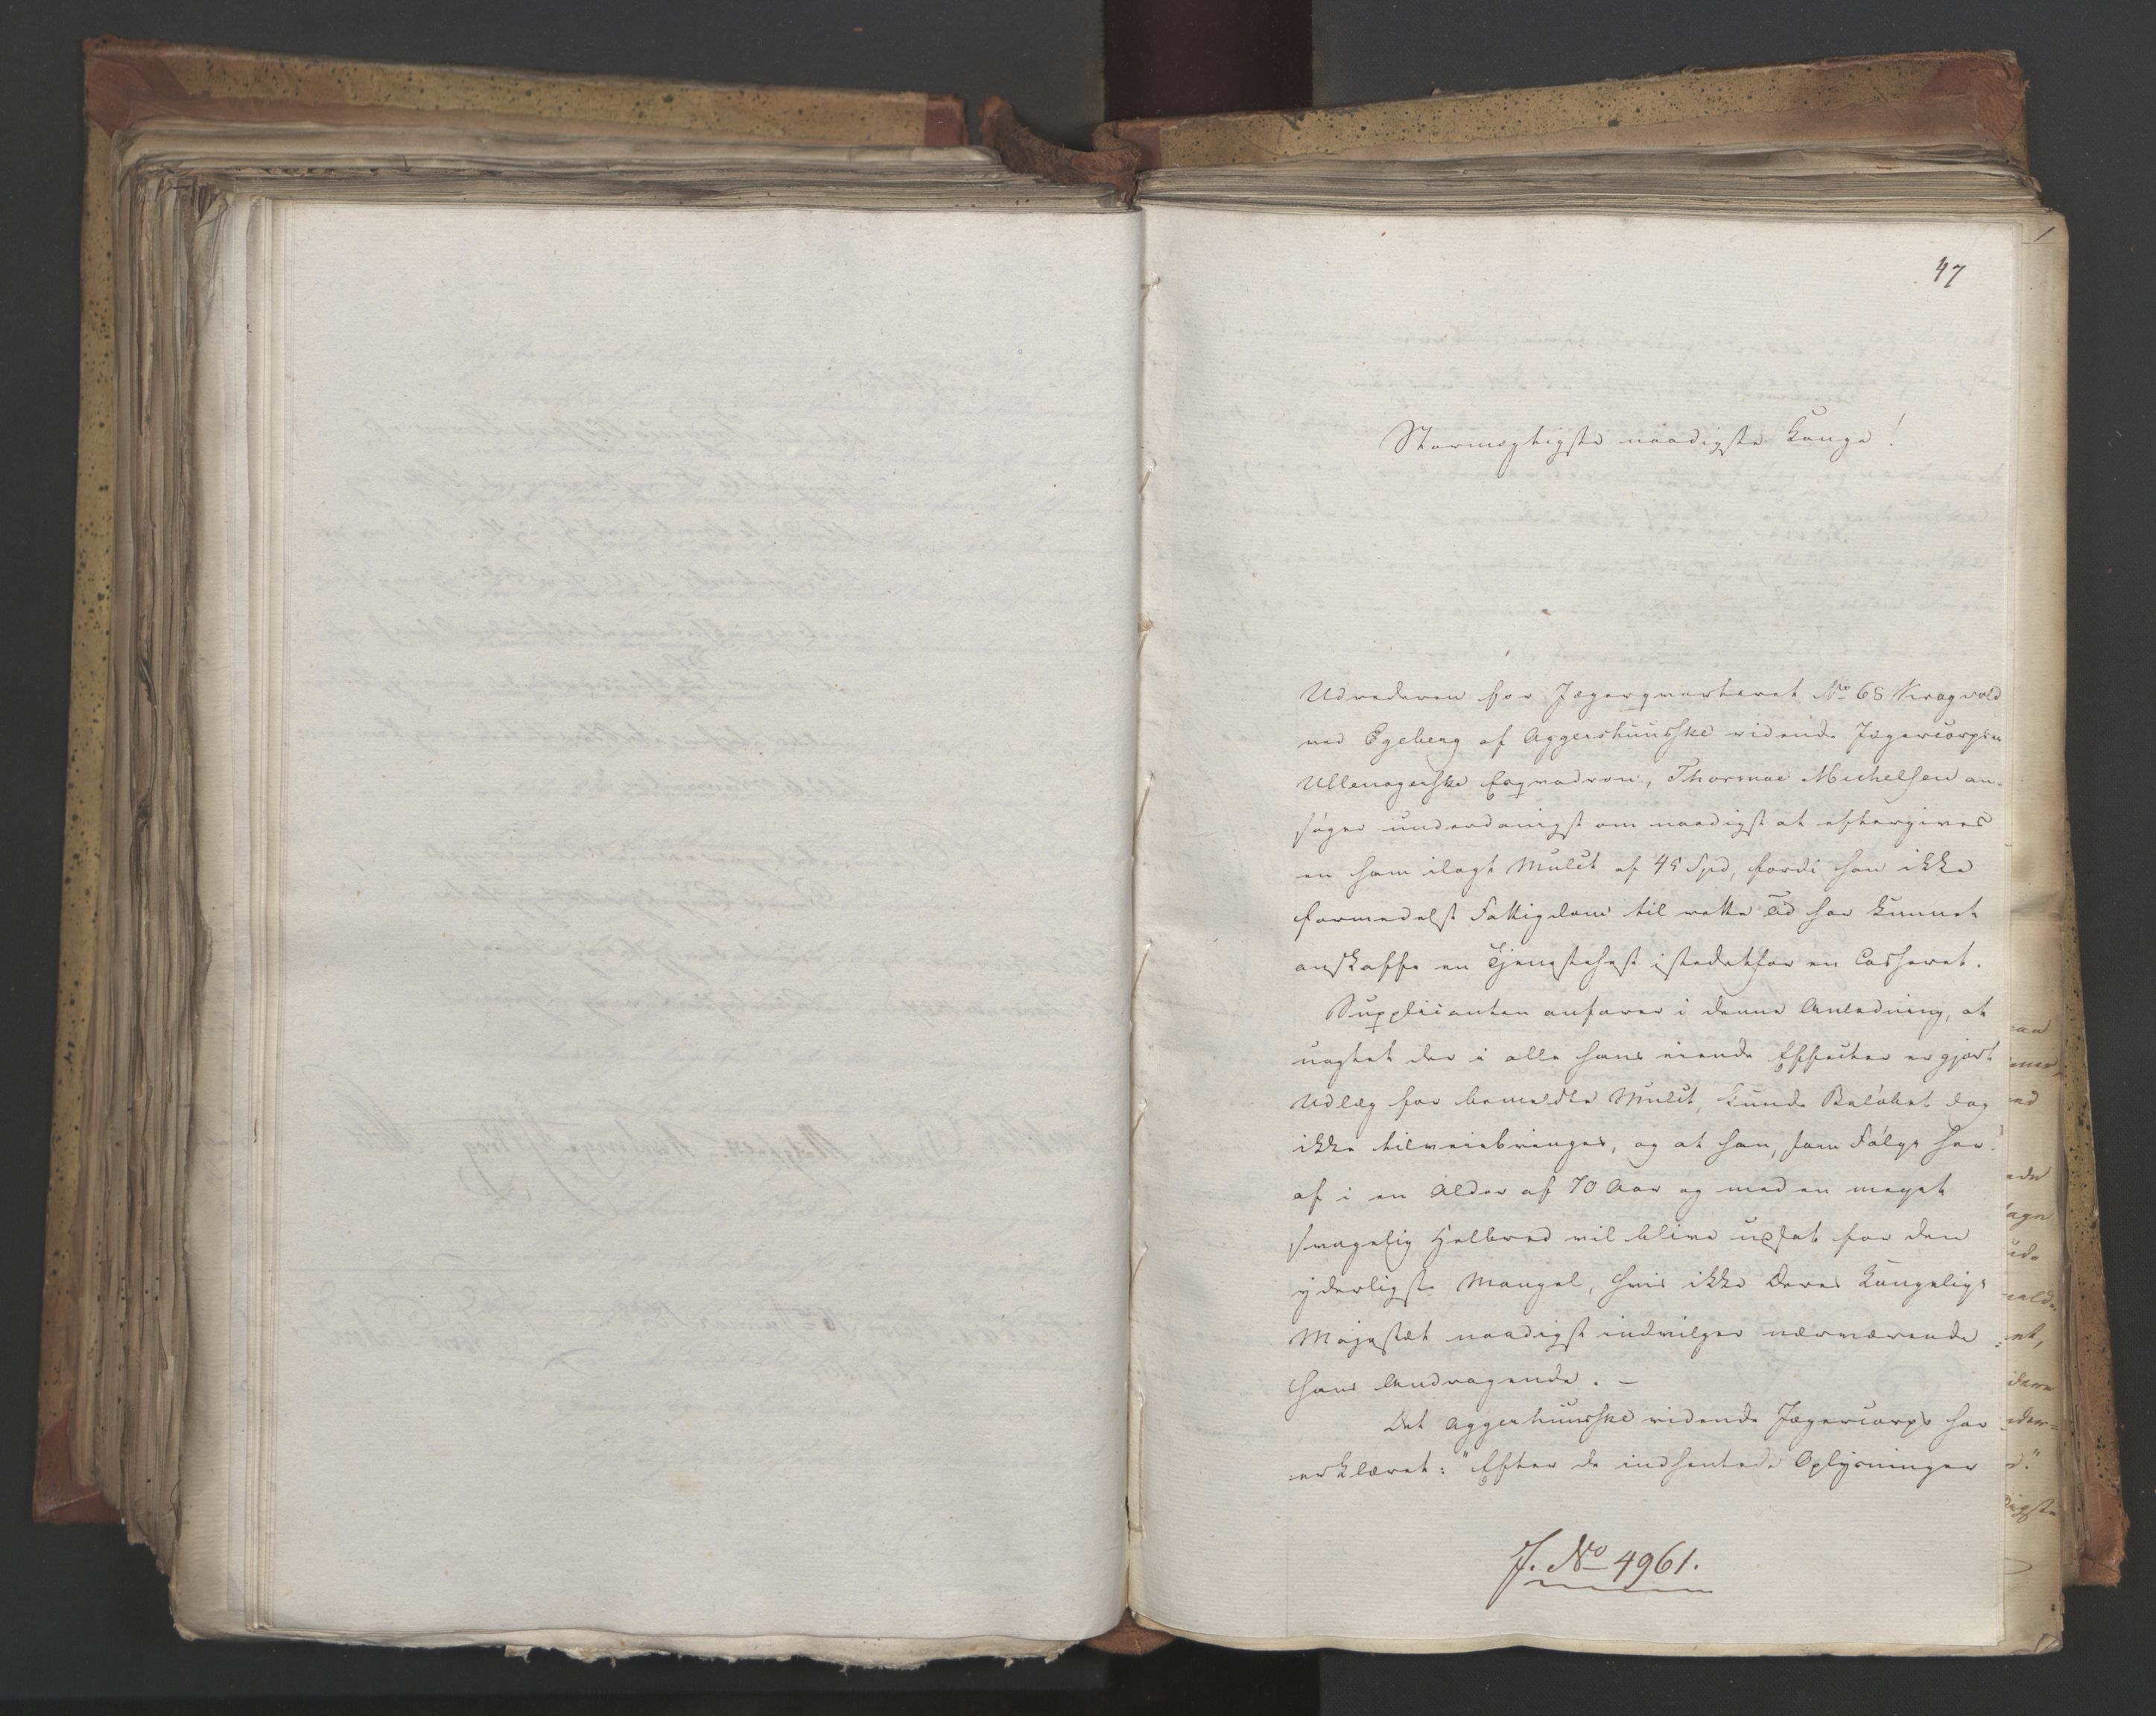 47
Stormægtigste naadigste Konge!
Udrederen for Jægerqvarteret No 68 Kragvold
ved Egeberg af Aggershuusske ridende Jægercorpses
Ullensagerske Esqvadron, Thormoe Michelsen an-
søger underdanigst om naadigst at eftergives
en ham ilagt Mulct af 45 Spd, fordi han ikke
formedelst Fattigdom til rette Tid har kunnet
anskaffe en Tjenestehest istedetfor en Casseret.
Supplicanten anfører i denne Anledning, at
uagtet der i alle hans eiende Effecter er gjort
Udlæg for bemeldte Mulct, kunde Beløbet dog
ikke tilveiebringes, og at han, som Følge her-
af i en Alder af 70 Aar og med en meget
svagelig Helbred vil blive udsat for den
yderligste Mangel, hvis ikke Deres Kongelige
Majestæt naadigst indvilger nærværende
hans Andragende. -
Det Aggershuusske ridende Jægercorps har
erklæret: "Efter de indhentede Oplysninger
J. No 4961.